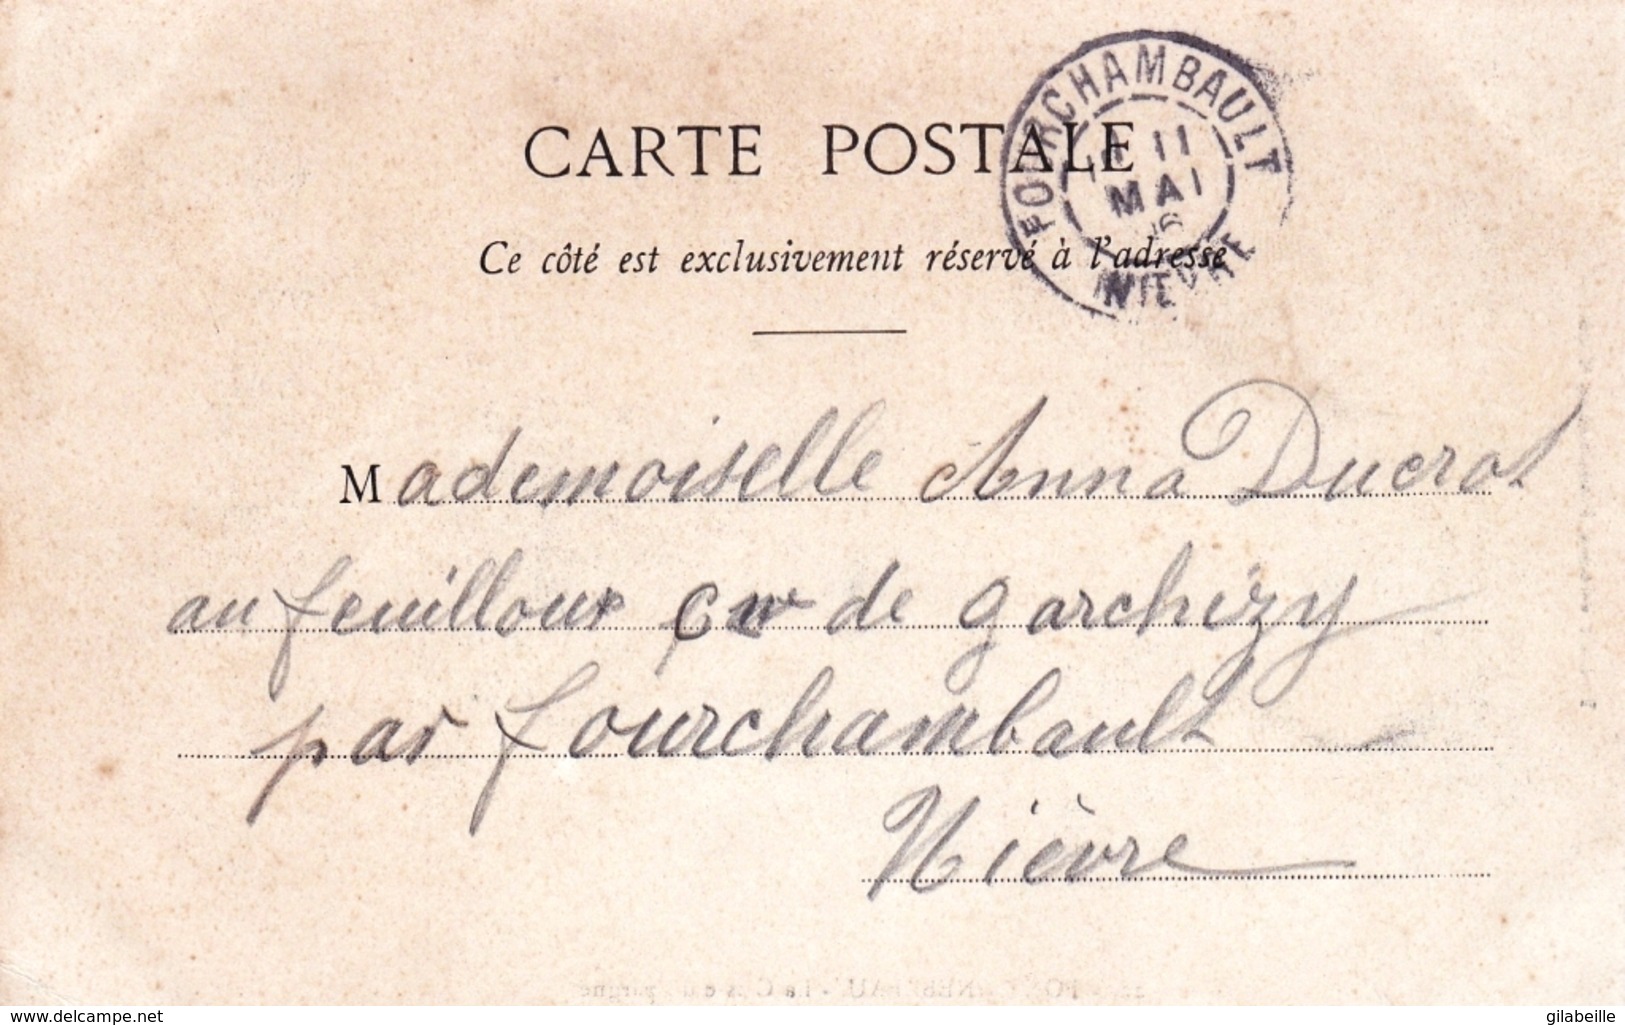 CARTE POSTALE
FOURCHAMBAULT
11
MAI
NIEVRE
Ce côté est exclusivement réservé à l'adresse
Mademoiselle Anna Ducrot
au feuilloux de garchizy
par fourchambault
Nièvre
www.delcampe.net
gilabeille